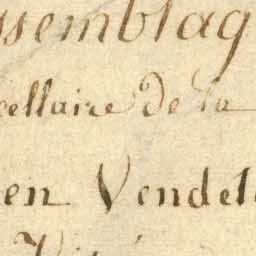 ssemblag
cellaire de la
en Vendel